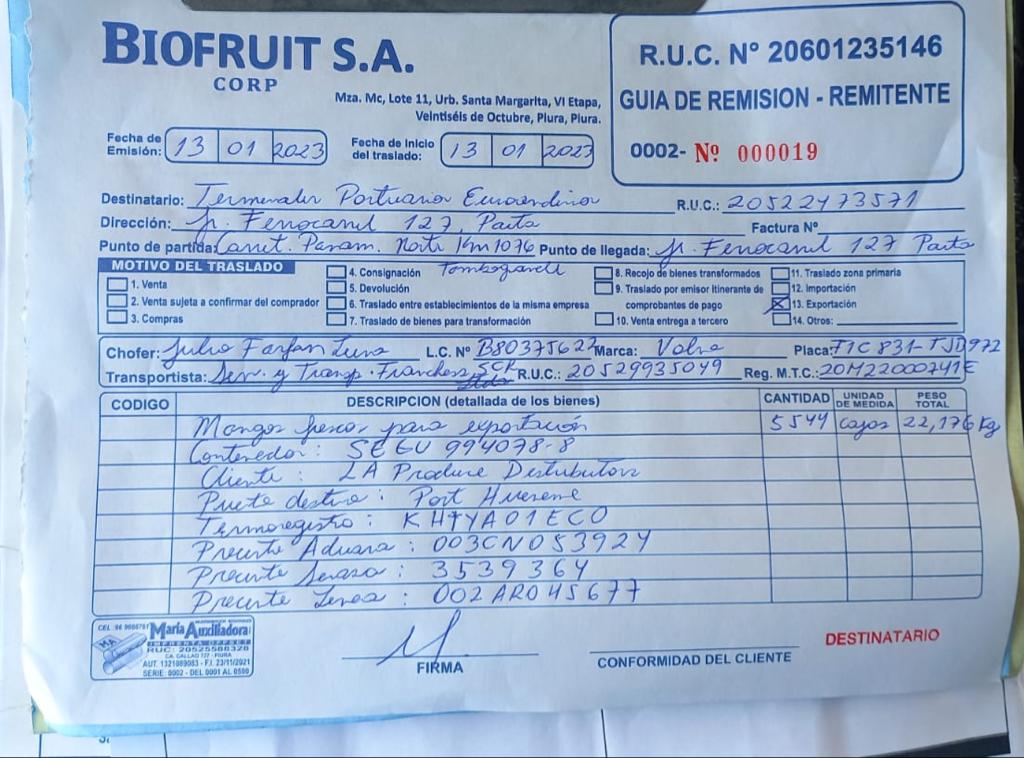 BIOFRUIT S.A.
CORP
Mza. Mc, Lote 11, Urb. Santa Margarita, VI Etapa,
Veintiséis de Octubre, Piura, Piura.
R.U.C. Nº 20601235146
GUIA DE REMISION - REMITENTE
0002- Nº 000019
Fecha de Emisión: 13 01 2023 Fecha de Inicio del traslado: 13 01 2023
Destinatario: Terminales Portuarios Euroandinos R.U.C.: 20522473571
Dirección: Jr. Ferrocarril 127, Paita Factura Nº
Punto de partida: Carret. Panam. Norte Km 1076 Punto de llegada: Jr. Ferrocarril 127 Paita
Tambogrande
MOTIVO DEL TRASLADO
1. Venta
2. Venta sujeta a confirmar del comprador
3. Compras
4. Consignación
5. Devolución
6. Traslado entre establecimientos de la misma empresa
7. Traslado de bienes para transformación
8. Recojo de bienes transformados
9. Traslado por emisor Itinerante de
comprobantes de pago
10. Venta entrega a tercero
11. Traslado zona primaria
12. Importación
13. Exportación
14. Otros:
Chofer: Julio Farfan Luna L.C. Nº B80375622 Marca: Volvo Placa: T1C 831- TJD972
Transportista: Serv. y Transp. Franchess SCR Ltda R.U.C.: 20529935049 Reg. M.T.C.: 20M22000741E
CODIGO DESCRIPCION (detallada de los bienes) CANTIDAD UNIDAD DE MEDIDA PESO TOTAL
Mangos frescos para exportación 5544 cajas 22,176 kg
Contenedor: SEGU 994078-8
Cliente: LA Produce Distributors
Puerto destino: Port Hueneme
Termoregistro: KHTYA01ECO
Precinto Aduana: 003CN053924
Precinto Senasa: 3539364
Precinto Linea: 002AR045677
CEL: 96 9666761
María Auxiliadora
IMPRENTA OFFSET
RUC: 20525588328
CA. CALLAO 727 - PIURA
AUT. 1321989083 - F.I. 23/11/2021
SERIE: 0002 - DEL 0001 AL 0500
FIRMA
CONFORMIDAD DEL CLIENTE
DESTINATARIO